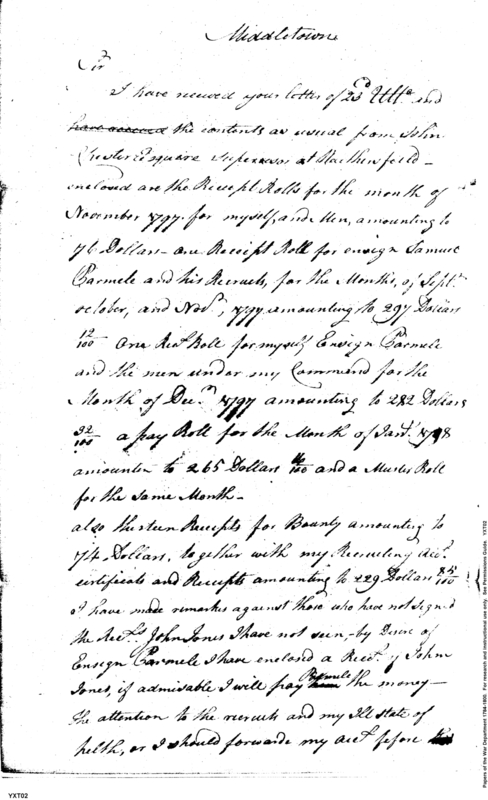 Middletown
Sir
I have received your letter of 23d Ulto. and
have received the contents as usual from John
Chester Esquare Supervisor at Weathersfield -
enclosed are the Receipt Rolls for the month of
November 1797. for myself, and Men, amounting to
76 Dollars - one Receipt Roll for ensign Samuel
Parmele and his Recruits, for the Months, of Septr.
october, and Novr., 1797 amounting to 297 Dollars
12/100 One Rect. Roll for myself Ensign Parmele
and the men under my Command for the
Month of Decr. 1797 amounting to 282 Dollars
32/100 a pay Roll for the Month of Jany. 1798
amounten to 265 Dollars 16/100 and a Muster Roll
for the same Month -
also thirteen Receipts for Bounty amounting to
74 Dollars, together with my Recruiting Acct.
certificate and Receipts amounting to 229 Dollars 85/100
I have made remarks against those who have not signed
the Rects. John Jones I have not seen, - by Desire of
Ensign Parmele I have enclosed a Rect. of John
Jones, if admisable I will pay Parmele the money -
The attention to the recruits and my Ill state of
helth, or I should forwarde my acct. before
YXT02
Papers of the War Department 1784-1800. For research and instructional use only. See Permissions Guide. YXT02